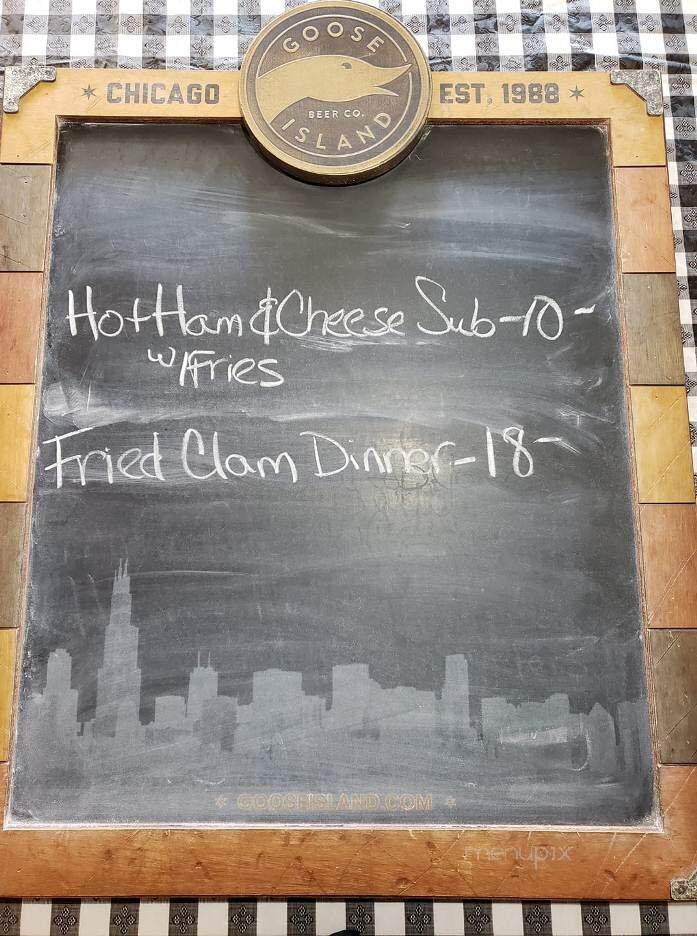 GOOSE
★ CHICAGO
EST. 1988 ★
BEER CO.
ISLAND
Hot Ham & Cheese Sub - 10 -
w/ Fries
Fried Clam Dinner - 18 -
★ GOOSEISLAND.COM ★
menupix